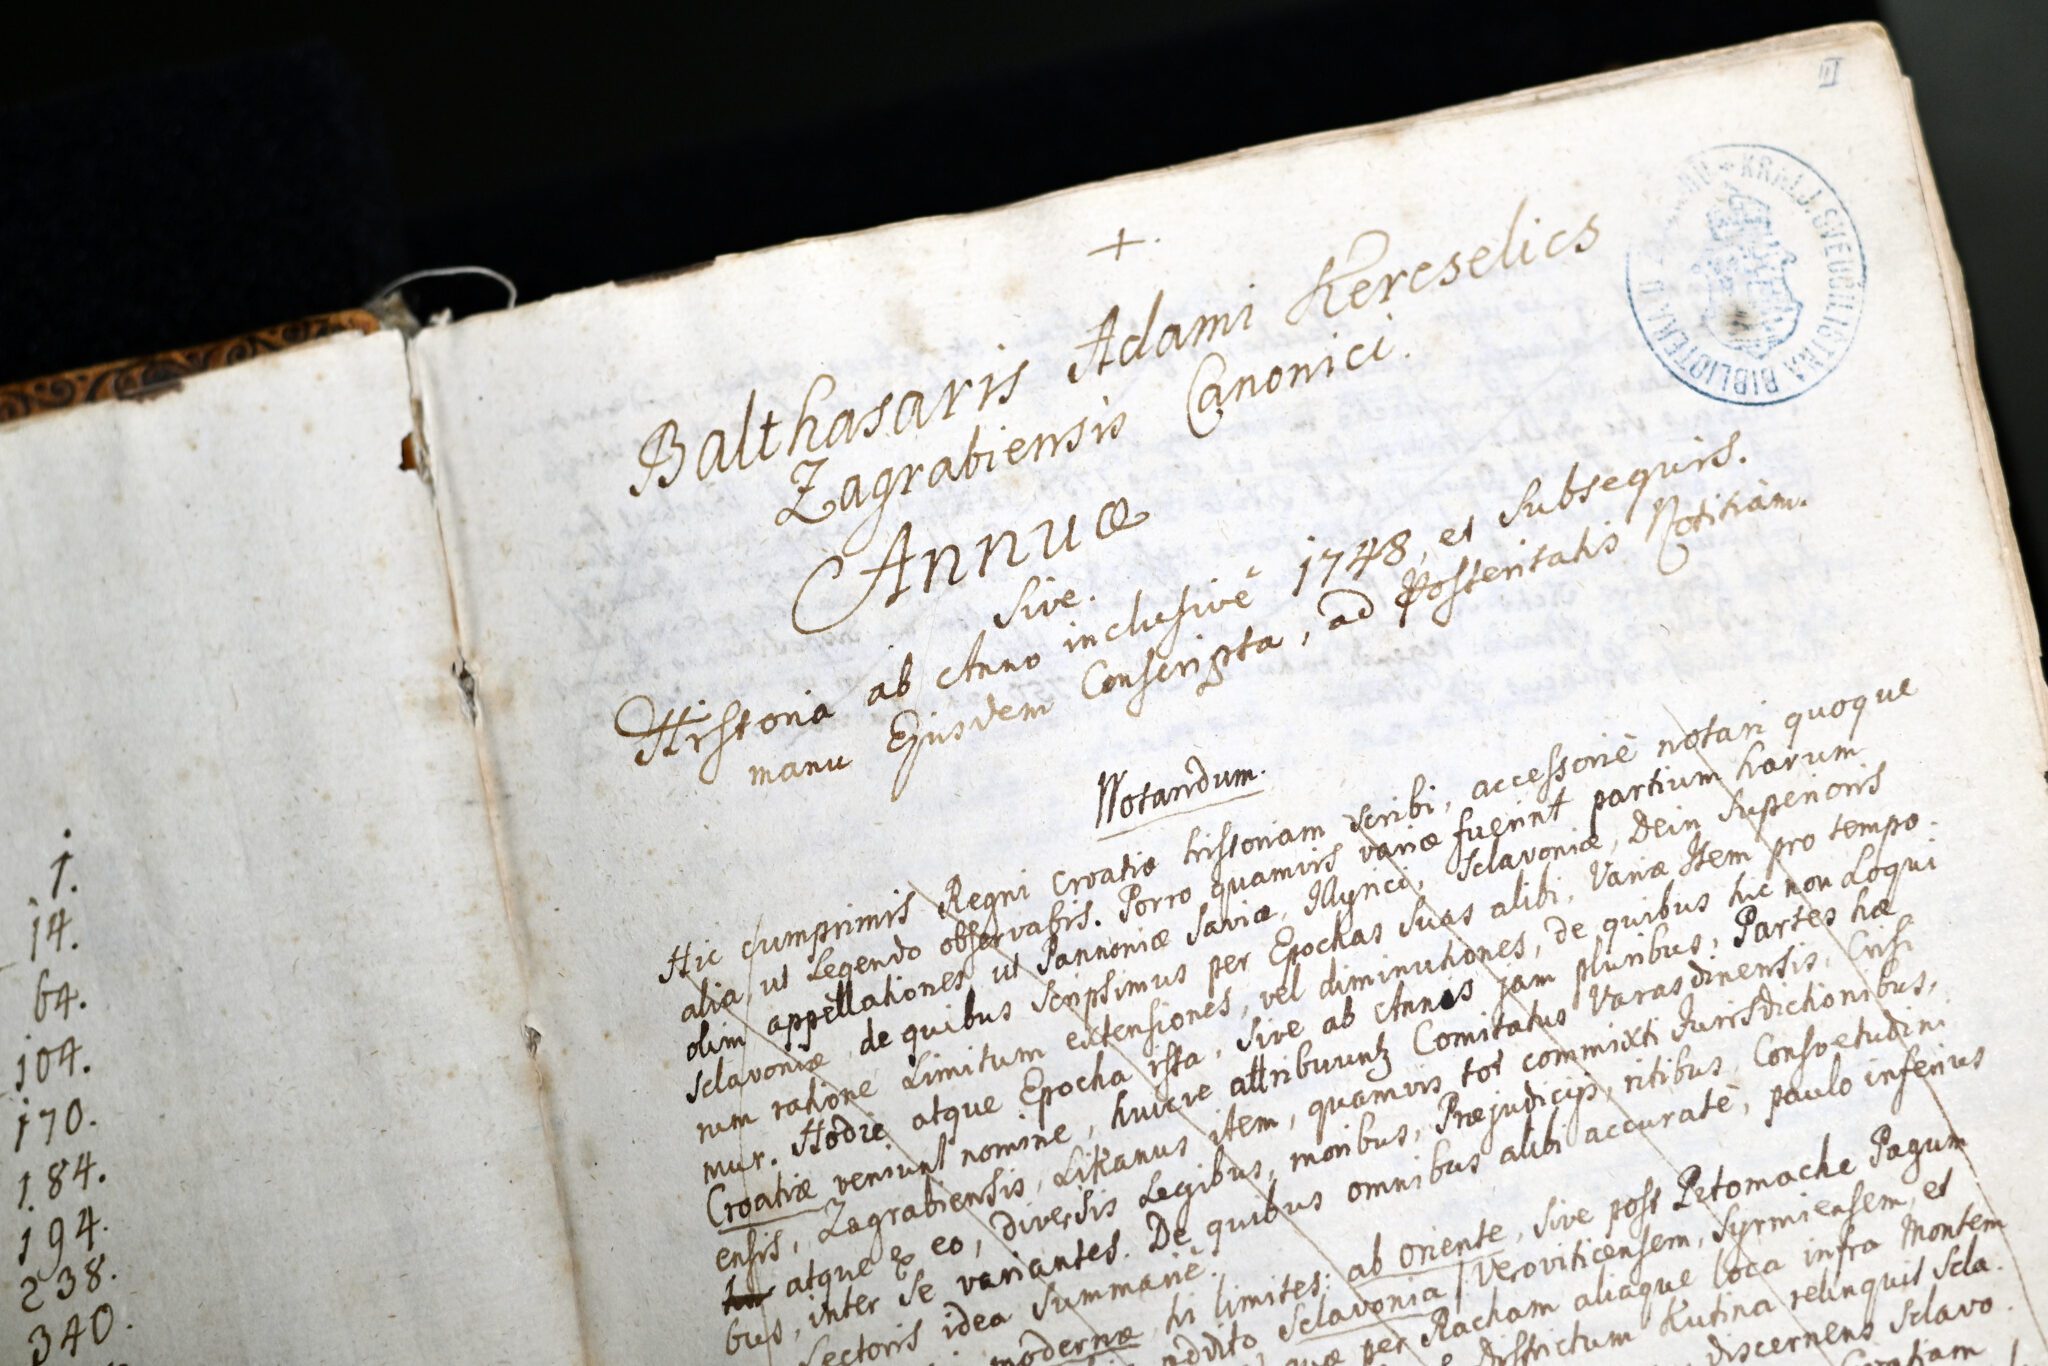 1.
14.
64.
104.
170.
184.
194.
238.
340.
II
KRALJ. SVEUČILIŠTNA BIBLIOTEKA U ZAGREBU
+.
Balthasaris Adami Kercselics
Zagrabiensis Canonici.
Annuæ
sive.
Historia ab Anno inclusivè 1748, et subsequis.
manu Ejusdem Conscripta, ad Posteritatis Notitiam.
Notandum.
Hic cumprimis Regni Croatiæ historiam scribi, accessoriè notari quoque
alia, ut Legendo observabis. Porro quamvis variæ fuerint partium harum
olim appellationes, ut Pannoniæ Saviæ, Illyrici, Sclavoniæ, Dein superioris
Sclavoniæ, de quibus scripsimus per Epochas suas alibi, Variæ Item pro tempo-
rum ratione Limitum extensiones, vel diminutiones, de quibus hic non Loqui
mur. Hodie atque Epocha ista, sive ab Annis jam pluribus, Partes hæ
Croatiæ veniunt nomine, huicve attribuunt Comitatus Varasdinensis, Crisi
ensis, Zagrabiensis, Likanus item, quamvis tot commixti Jurisdictionibus,
atque ex eo, diversis Legibus, moribus, Præjudicijs, ritibus, Consvetudini
bus, inter se variantes. De quibus omnibus alibi accuratè, paulo inferius
Lectoris idea summariè.
modernæ, hi limites: ab oriente, sive post Petomache Pagum
addito Sclavonia Veroviticensem, Syrmiensem, et
quæ per Racham aliaque loca infra Montem
Districtum Kutina relinquit Scla-
discernens Sclavo-